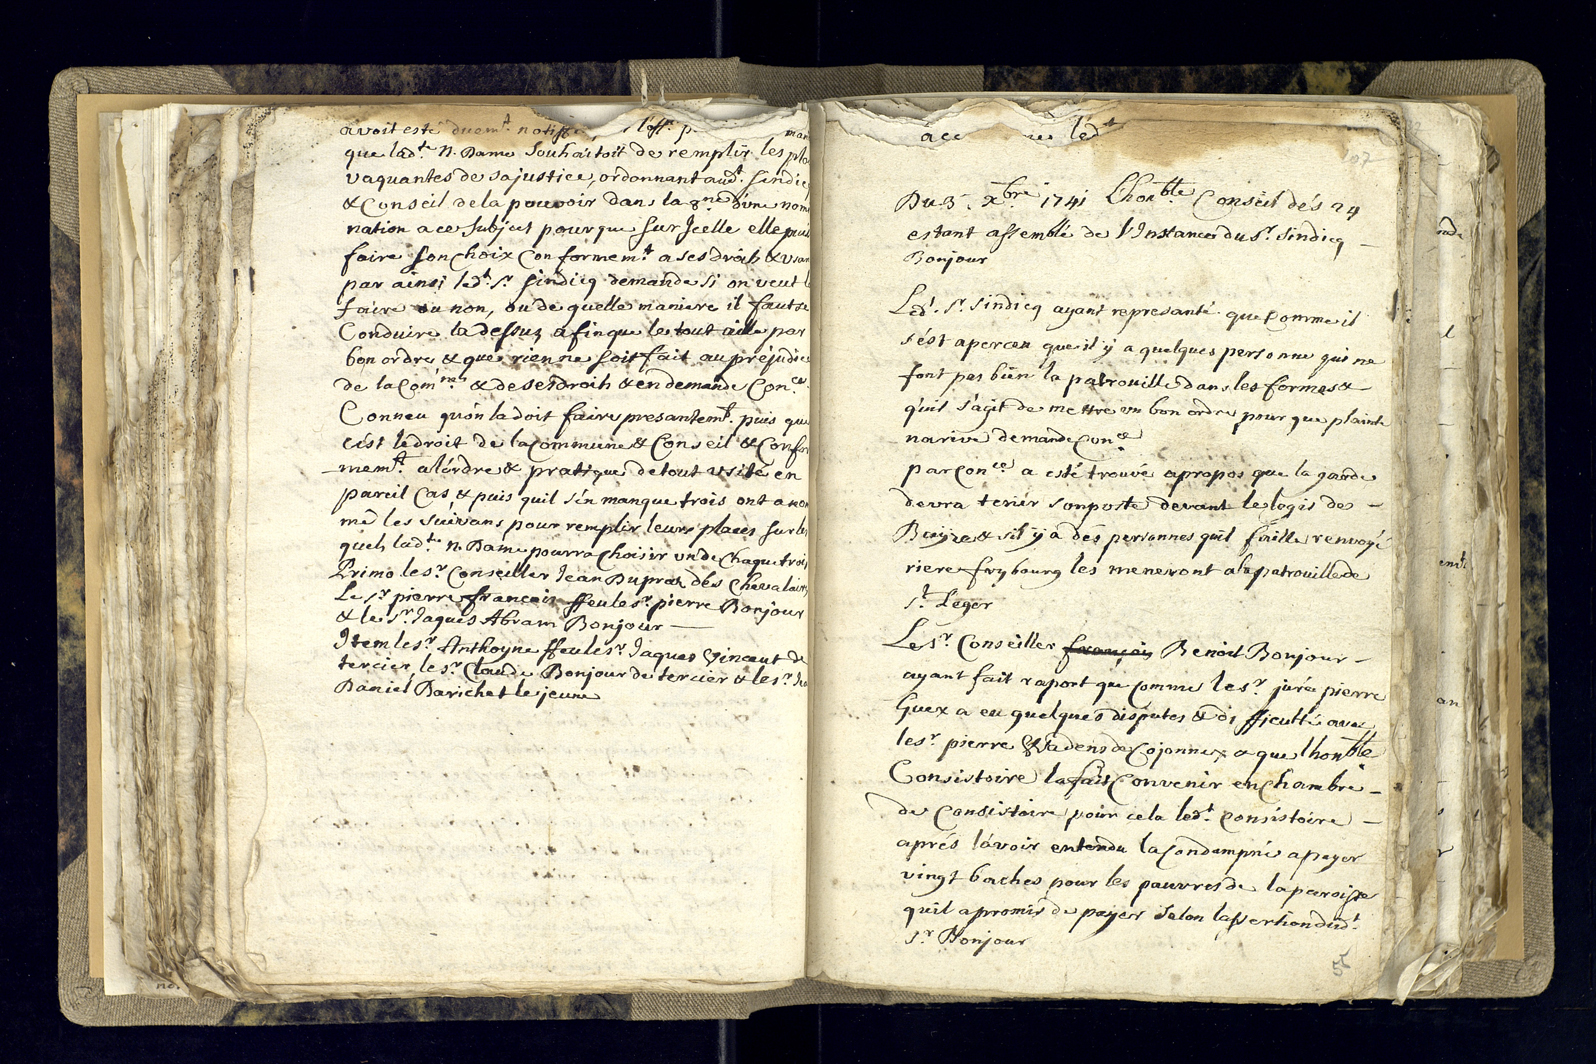 avoit esté duem.t notiffié
que lad.te N. Dame Souhaitoit de remplir les pla
vaquantes de sa justice, ordonnant aud.t Sindicq
& Conseil de la pouvoir dans la 8.ne d'une nomi
nation a ce Subject pour que Sur Jcelle elle puis
faire Son choix Conformem.t a ses droits & usan
par ainsi led.t S.r Sindicq demande Si on veut l
faire ou non, ou de quelle maniere il faut se
Conduire la dessuz afin que le tout aille par
bon ordre & que rien ne Soit fait au préjudice
de la Com.ne & de ses droits & en demande Con.ce
Conneu qu'on la doit faire presantem.t puis que
c'est le droit de la Commune & Conseil & Confor
mem.t a l'ordre & pratique de tout usité en
pareil Cas & puis quil s'en manque trois ont a nom
mé les Suivans pour remplir leurs places Sur les
quels lad.te N. Dame pourra Choisir un de Chaque trois
Primo le S.r Conseiller Jean Dupraz des Chevalairs
Le S.r pierre françois ffeu le S.r pierre Bonjour
& le S.r Jaques Abram Bonjour
Item le S.r Anthoyne ffeu le S.r Jaques Vincent de
tercier, le S.r Claude Bonjour de tercier & le S.r Jea
Daniel Barichet le jeune
led.t
107
Du 3.e xbre 1741 Lhon.ble Conseil dés 24
estant assemblé de l'Instance du S.r Sindicq
Bonjour
Led.t S.r Sindicq ayant represanté que Comme il
s'est aperceu que il y a quelques personne qui ne
font pas bien la patrouille dans les formes &
qu'il s'agit de mettre un bon ordre pour que plainte
n'arive demande Con.ce
par Con.ce a esté trouvé a propos que la garde
devra tenir son poste devant le logis de
& s'il y a dés personnes quil faille renvoyé
riere frybourg les meneront a la patrouille de
S.t Leger
Le S.r Conseiller françois Benoit Bonjour
ayant fait raport que comme le S.r juré pierre
Guex a eu quelques disputes & difficulté avec
le S.r pierre de Cojonnex a que lhon.ble
Consistoire la fait Convenir en Chambre
de Consistoire pour cela led.t Consistoire
aprés l'avoir entendu la Condampné a payer
vingt baches pour les pauvres de la paroisse
quil a promis de payer Selon lassertion dud.t
S.r Bonjour